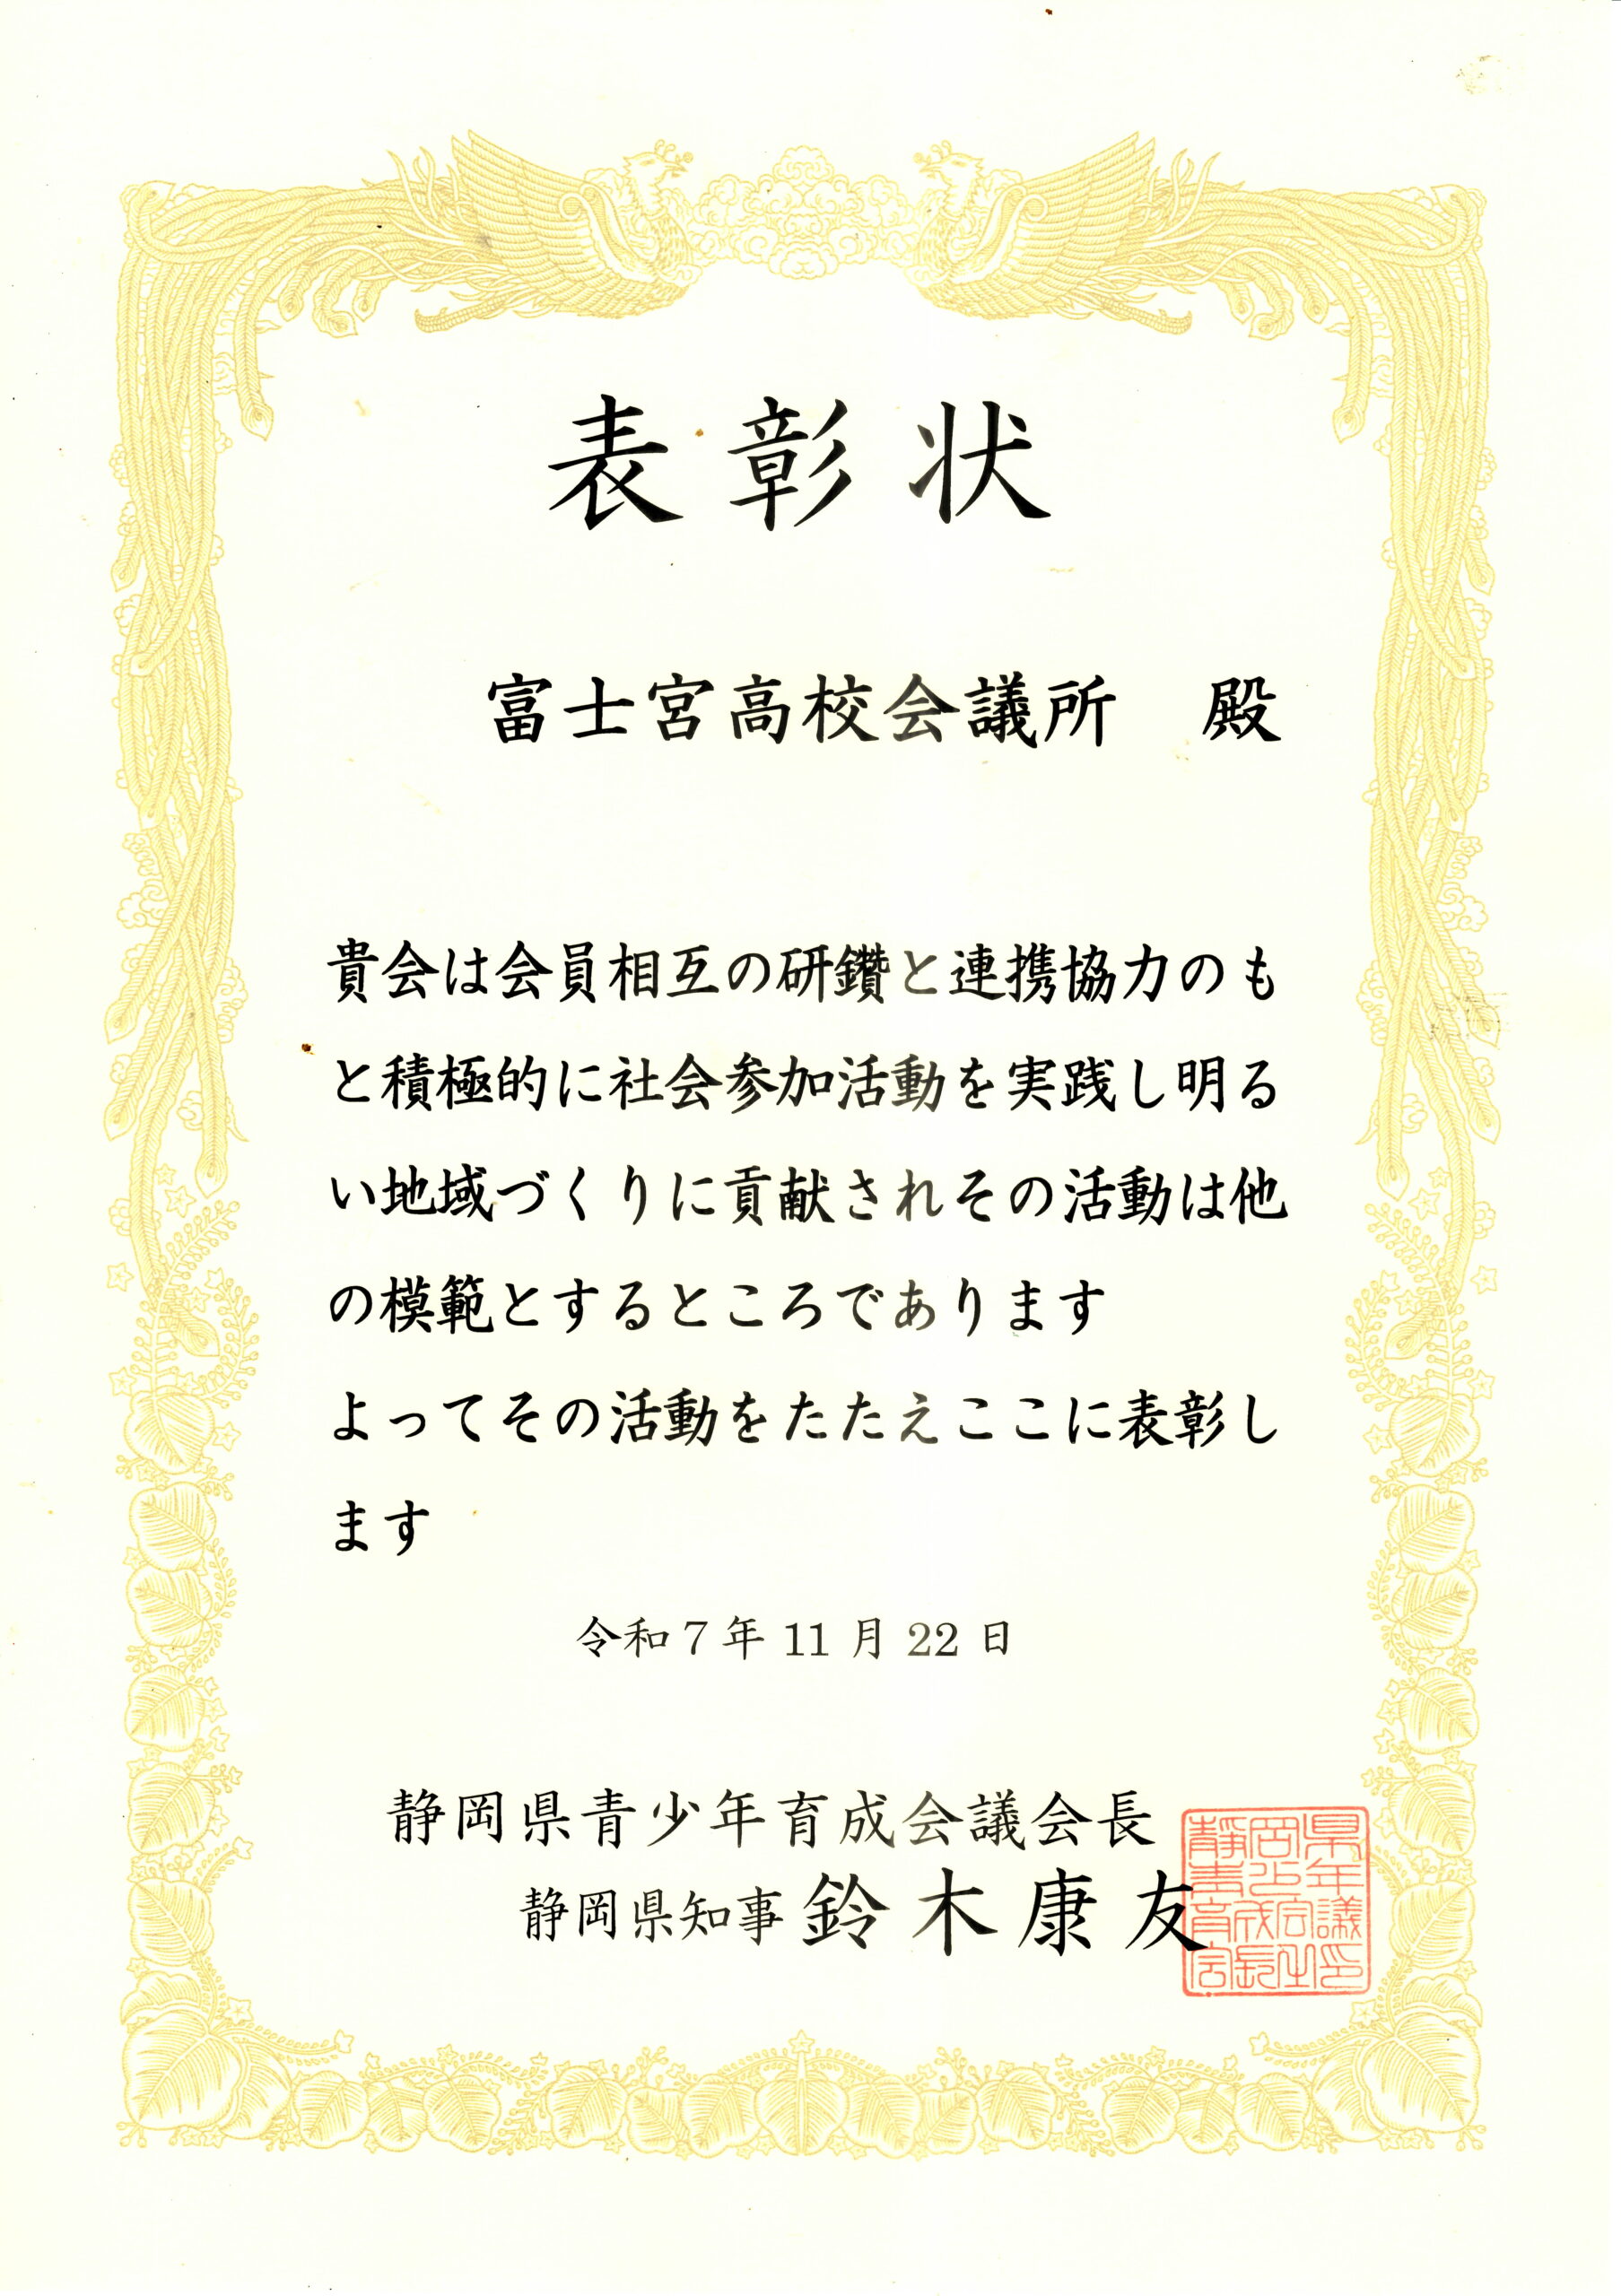 表彰状
富士宮高校会議所　殿
貴会は会員相互の研鑽と連携協力のも
と積極的に社会参加活動を実践し明る
い地域づくりに貢献されその活動は他
の模範とするところであります
よってその活動をたたえここに表彰し
ます
令和7年11月22日
静岡県青少年育成会議会長
静岡県知事 鈴木康友